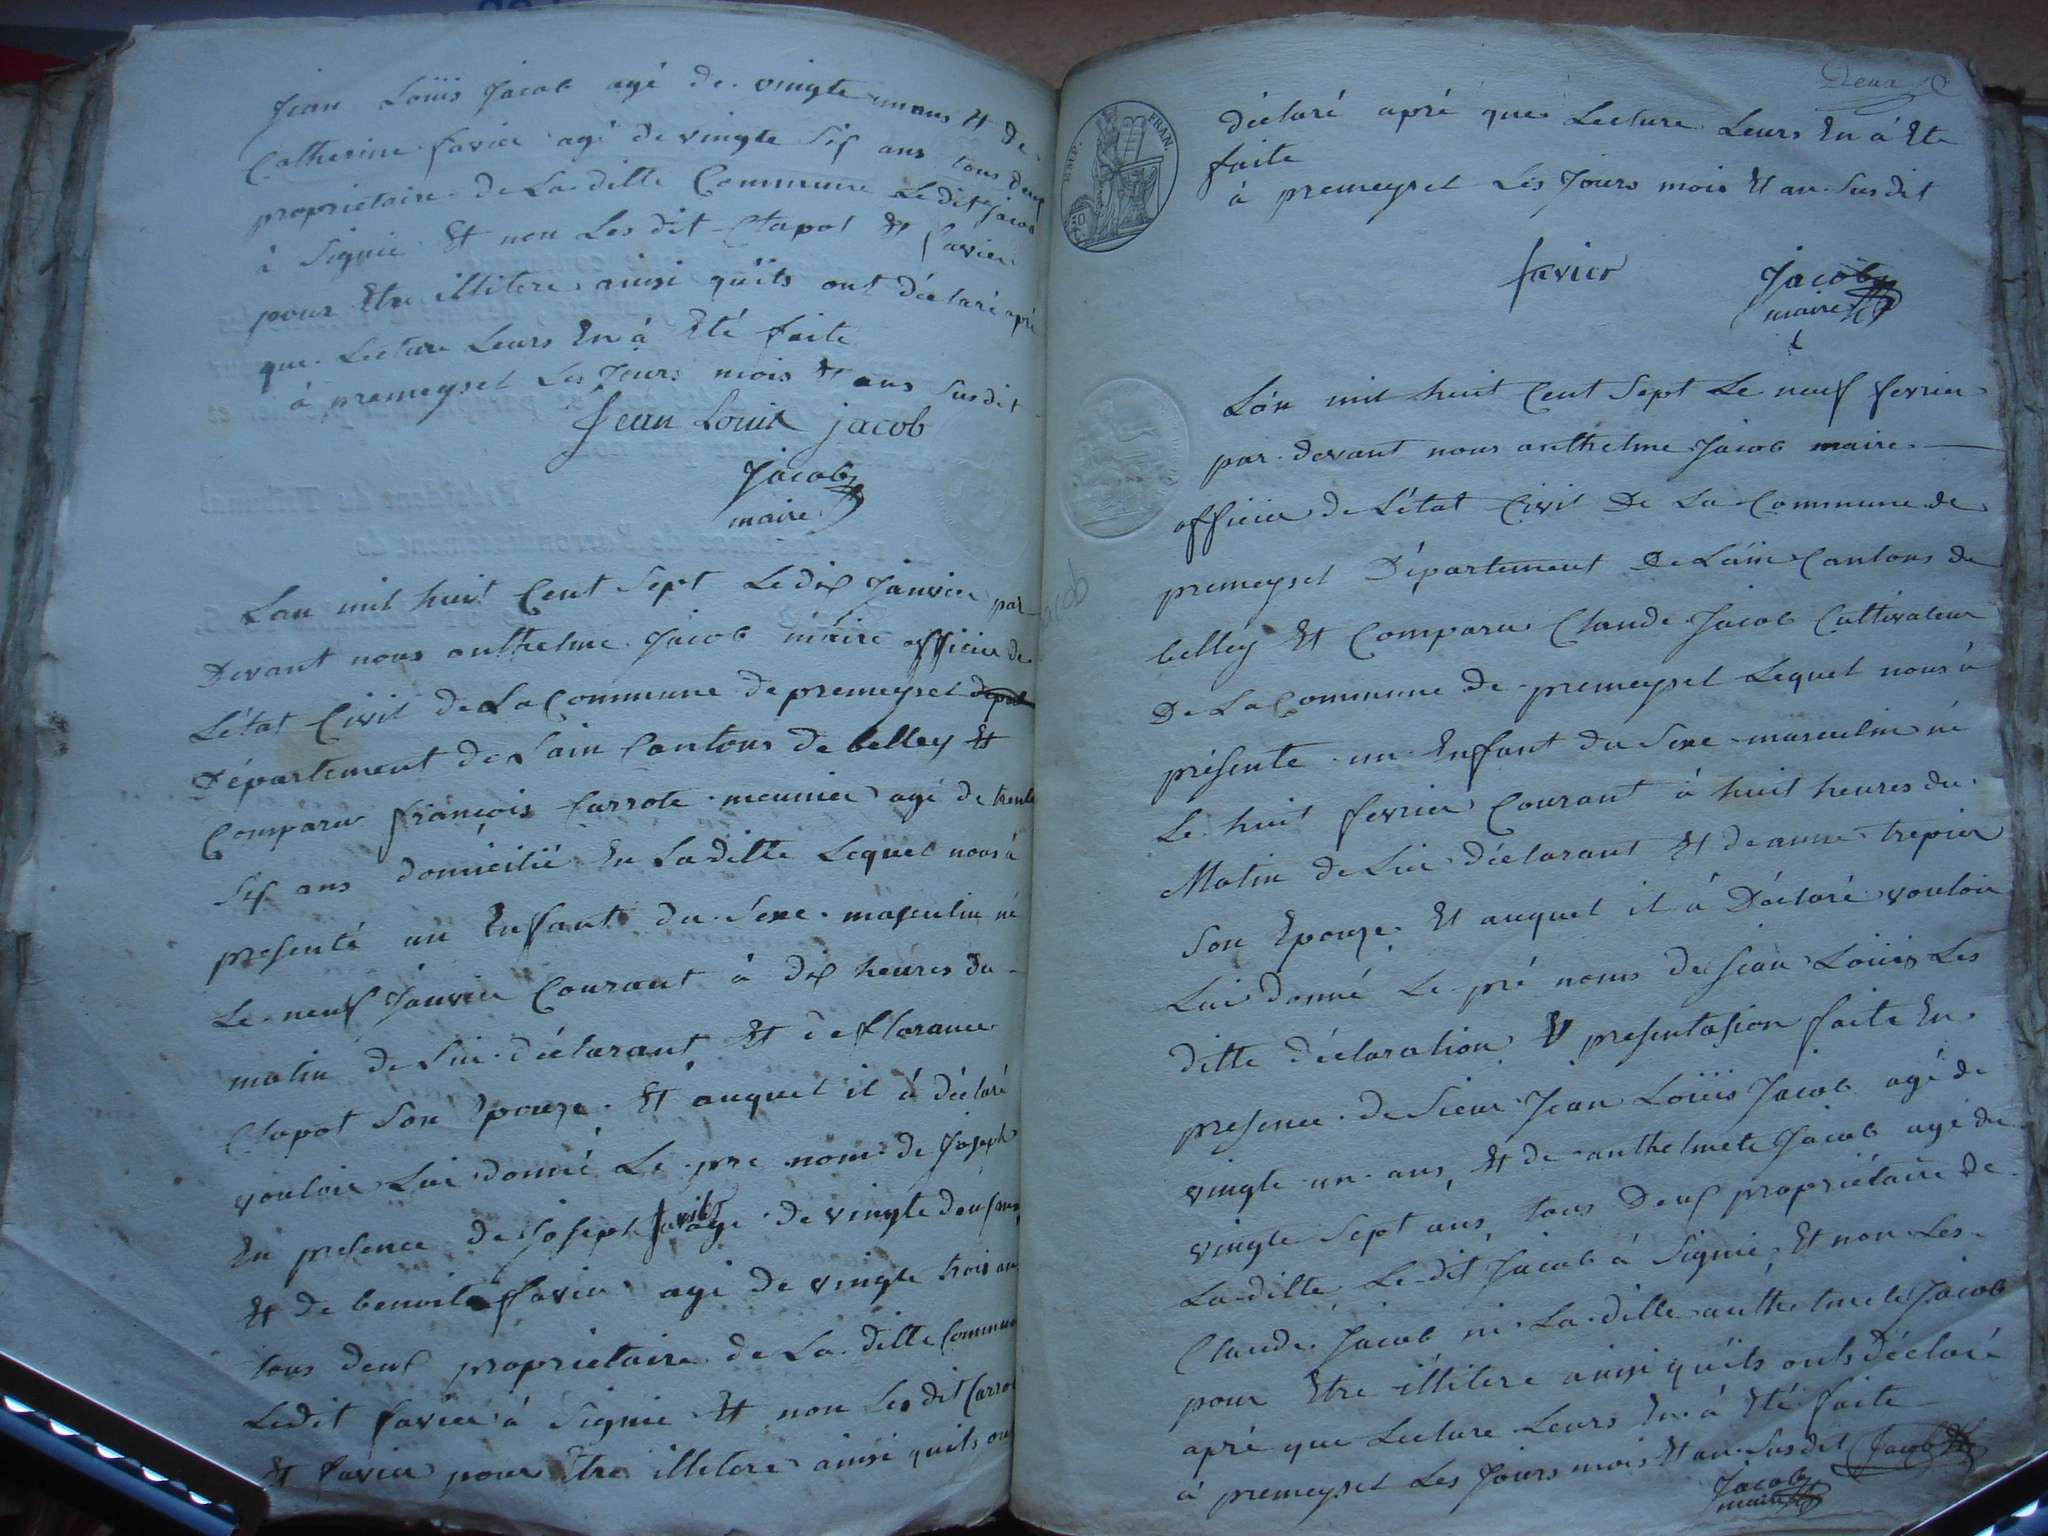 Jean Loüis Jacob agé de vingte un ans Et de
Catherine favier agé de vingte Six ans tous deux
proprietaire de La ditte Commune Le dit Jacob
à Signié Et non Les dit Clapot Et favier
pour Etre illitere ainsi qu'ils ont déclaré apré
que Lecture Leurs En à Eté faite
à premeysel Les Jours mois Et ans Susdit
Jean Louis jacob
Jacob
maire
Lan mil huit Cent Sept Le dix Janvier par
Devant nous anthelme Jacob maire officier de
L'état Civil de La Commune de premeysel
Département de Lain Cantons de belley Et
Comparu françois Carrote meunier agé de trente
Six ans domicilié En La ditte Lequel nous à
presenté un Enfant du Sexe masculin né
Le neuf Janvier Courant à dix heures du
matin de Lui déclarant Et de florance
Clapot Son Epouze Et auquel il à déclaré
vouloir Lui donné Le pre nom de Joseph
En presence de Joseph favier agé de vingte deux ans
Et de benoite favier agé de vingte trois ans
tous deux proprietaire de La ditte Commune
Ledit favier à Signié Et non Les dit Carrote
Et favier pour Etre illitere ainsi quils ont
Deux
déclaré apré que Lecture Leurs En à Ete
faite
à premeysel Les Jours mois Et an Susdit
favier
Jacob
maire
EMP. FRAN.
L'an mil huit Cent Sept Le neuf fevrier
par devant nous anthelme Jacob maire
officier de L'état Civil De La Commune de
premeysel Département De Lain Cantons de
belley Et Comparu Claude Jacob Cultivateur
De La Commune de premeysel Lequel nous à
présenté un Enfant du Sexe masculin né
Le huit fevrier Courant à huit heures du
Matin de Lui déclarant Et de anne trepier
Son Epouze Et auquel il à Déclaré vouloir
Lui donné Le pré noms de Jean Loüis Les
ditte déclaration Et presentasion faite En
presence de Sieur Jean Loüis Jacob agé de
vingte un ans Et de anthelmete Jacob agé de
vingte Sept ans tous Deux propriétaire de
La ditte Le dit Jacob à Signié Et non Les
Claude Jacob ni La ditte anthelmete Jacob
pour Etre illitere ainsi qu'ils onts déclaré
apré que Lecture Leurs En à Eté faite
à premeysel Les Jours mois Et an Susdit Jacob
Jacob
maire